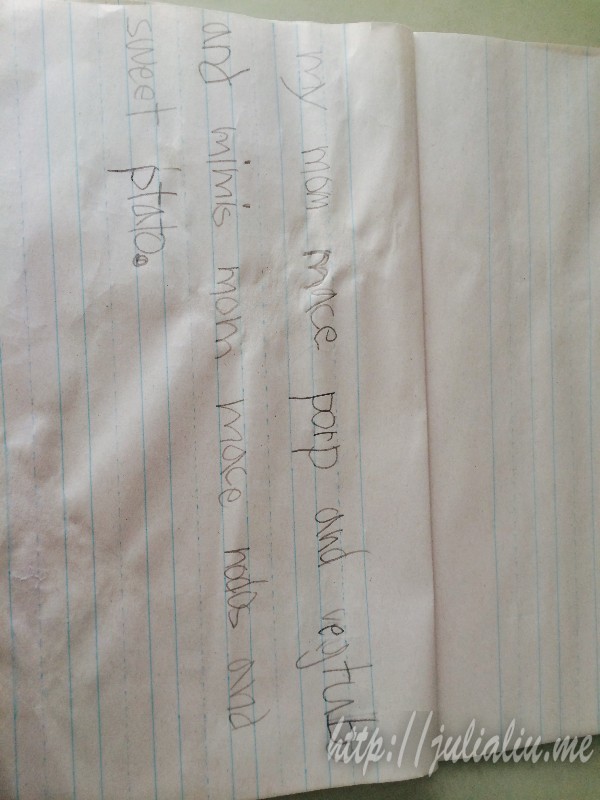 my mom mace porp and
and mimis mom mace nodos and
sweet ptato.
http://julialiu.me